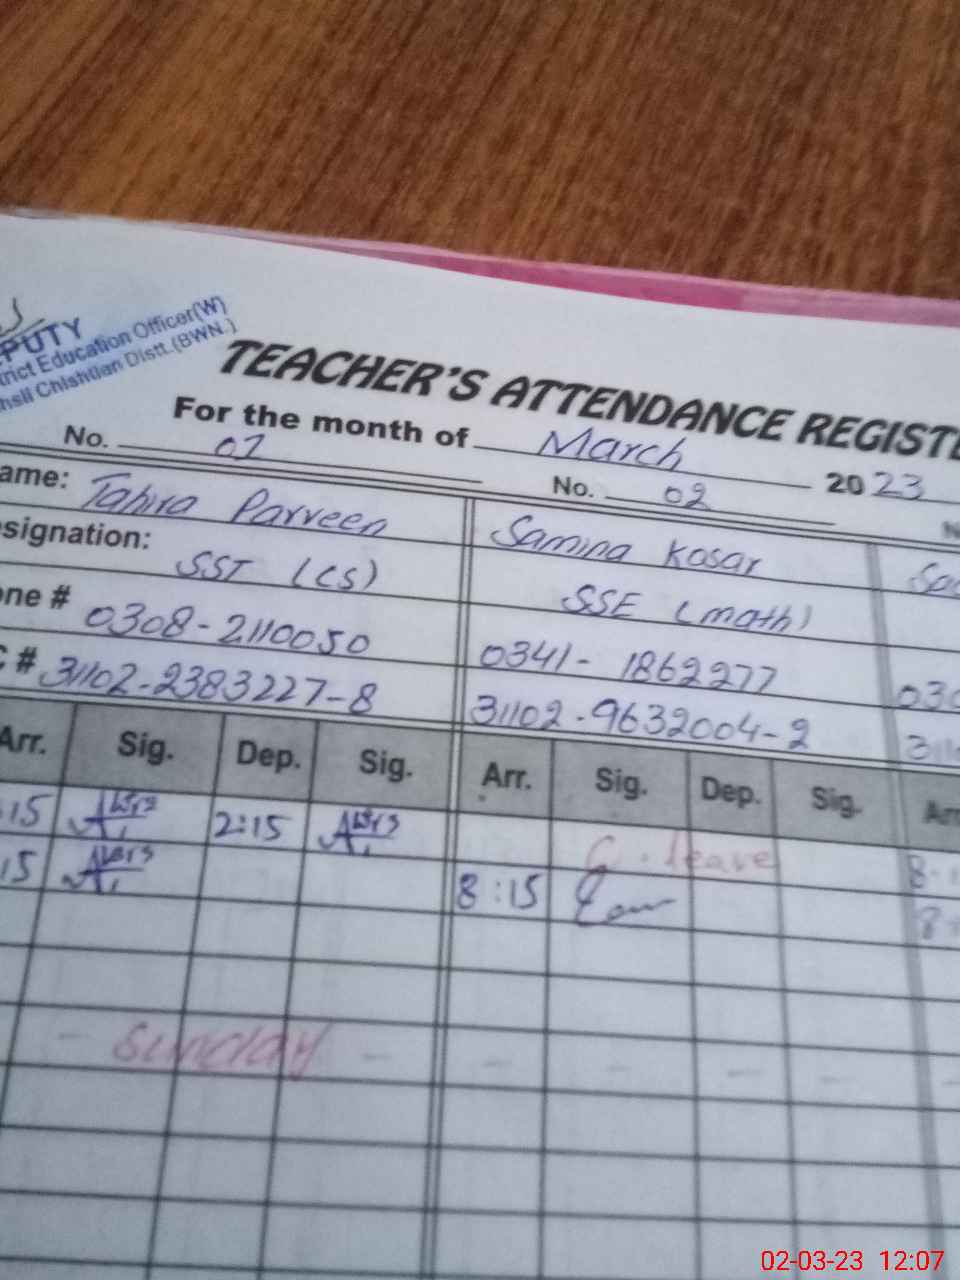 PUTY
rict Education Officer(W)
hsil Chishtian Distt.(BWN.)
TEACHER'S ATTENDANCE REGISTE
For the month of March 2023
No. 01 No. 02
ame: Tahira Parveen Samina Kosar
signation: SST (CS) SSE (math)
one # 0308-2110050 0341-1862277 030
C # 31102-2383227-8 31102-9632004-2
Arr. Sig. Dep. Sig. Arr. Sig. Dep. Sig. Arr
:15 2:15 C. leave 8:
15 8:15 8
- Sunday - - - - - -
02-03-23 12:07